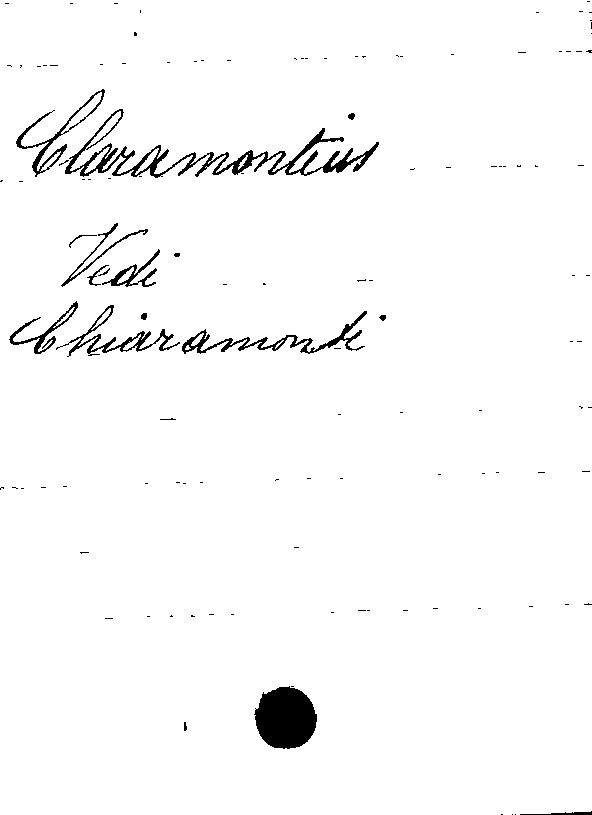 Claramontius
Vedi
Chiaramonti